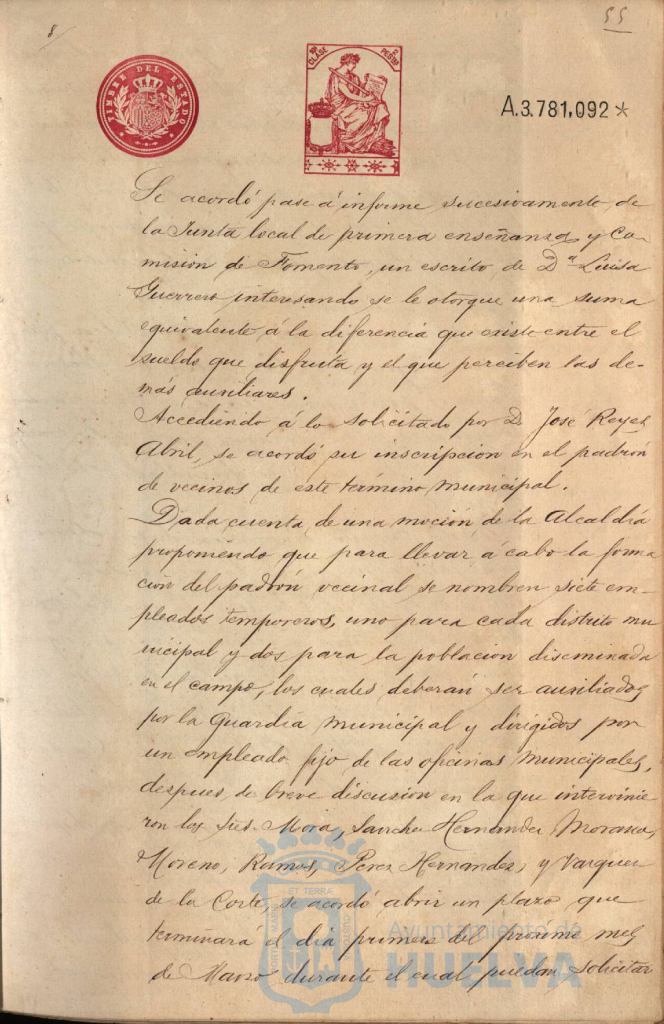 8
55
TIMBRE DEL ESTADO
CLASE
PESETAS
A.3.781,092*
Se acordó pase á informe sucesivamente de
la Junta local de primera enseñanza y Co-
mision de Fomento, un escrito de Dª Luisa
Guerrero interesando se le otorgue una suma
equivalente á la diferencia que existe entre el
sueldo que disfruta y el que perciben las de-
más auxiliares.
Accediendo á lo solicitado por D. José Reyes
Abril, se acordó su inscripcion en el padrón
de vecinos de este término municipal.
Dada cuenta de una moción de la Alcaldía
proponiendo que para llevar á cabo la forma
cion del padrón vecinal se nombren siete em-
pleados temporeros, uno para cada distrito mu
nicipal y dos para la poblacion diseminada
en el campo, los cuales deberán ser auxiliados
por la Guardia municipal y dirigidos por
un empleado fijo de las oficinas municipales,
despues de breve discusion en la que intervinie
ron los Sres. Mora, Sanchez Hernandez,
Moreno, Ramos, Perez Hernandez, y Vazquez
de la Corte, se acordó abrir un plazo que
terminará el dia primero del próximo mes
de Marzo durante el cual puedan solicitar
ET TERRAE
Ayuntamiento de
HUELVA